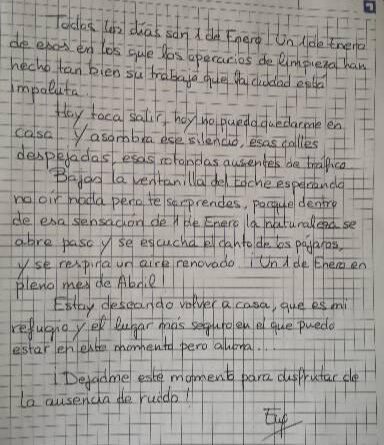 Todos los días son 1 de Enero. Un 1 de Enero
de esos en los que los operarios de limpieza han
hecho tan bien su trabajo que la ciudad está
impoluta.
Hoy toca salir, hoy no puedo quedarme en
casa. Y asombra ese silencio, esas calles
despejadas, esas rotondas ausentes de tráfico.
Bajas la ventanilla del coche esperando
no oir nada pero te sorprendes, porque dentro
de esa sensación de 1 de Enero la naturaleza se
abre paso y se escucha el canto de los pájaros,
y se respira un aire renovado. ¡Un 1 de Enero en
pleno mes de Abril!
Estoy deseando volver a casa, que es mi
refugio y el lugar más seguro en el que puedo
estar en este momento pero ahora...
¡Dejadme este momento para disfrutar de
la ausencia de ruido!